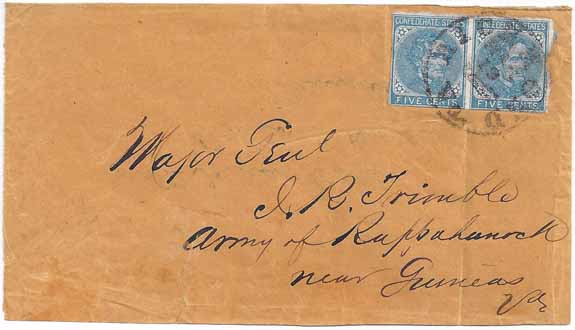 CONFEDERATE STATES CONFEDERATE STATES
FIVE CENTS FIVE CENTS
Major Genl
I. R. Trimble
Army of Rappahanock
near Guineas
Va